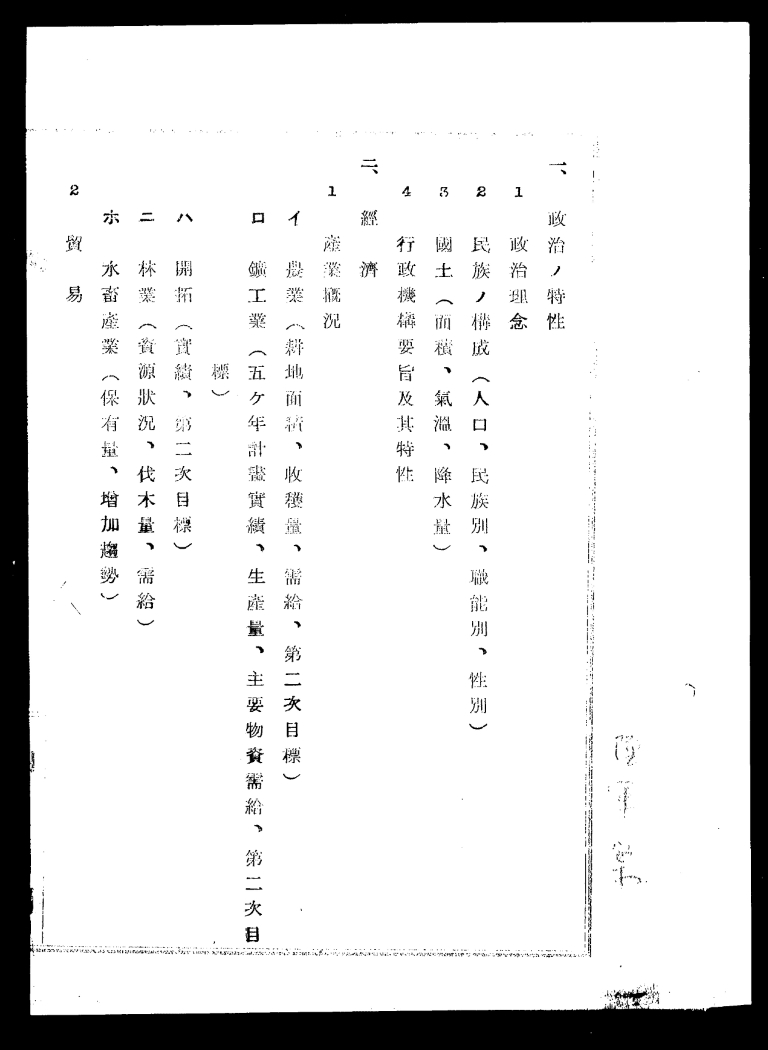 一、政治ノ特性
1 政治理念
2 民族ノ構成（人口、民族別、職能別、性別）
3 國土（面積、氣溫、降水量）
4 行政機構要旨及其特性
二、經濟
1 產業概況
イ 農業（耕地面積、收穫量、需給、第二次目標）
ロ 鑛工業（五ケ年計畫實績、生產量、主要物資需給、第二次目
標）
ハ 開拓（實績、第二次目標）
ニ 林業（資源狀況、伐木量、需給）
ホ 水畜產業（保有量、增加趨勢）
2 貿易
陸軍案